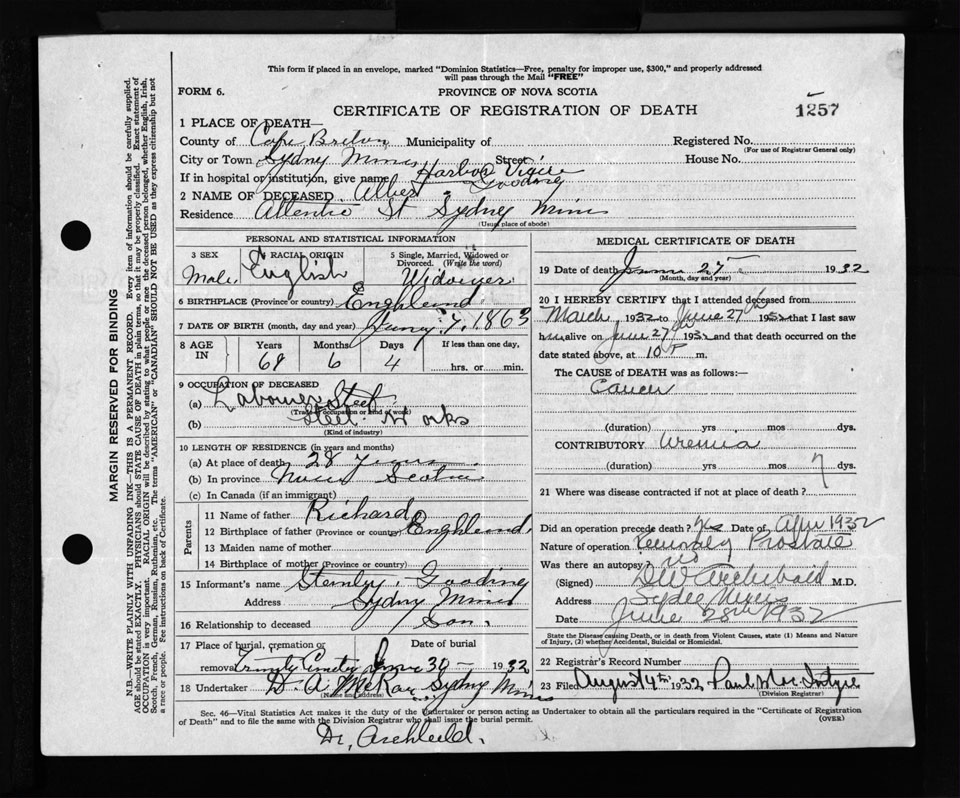 This form if placed in an envelope, marked "Dominion Statistics—Free, penalty for improper use, $300," and properly addressed
will pass through the Mail "FREE"
FORM 6.
PROVINCE OF NOVA SCOTIA
CERTIFICATE OF REGISTRATION OF DEATH
1257
1 PLACE OF DEATH—
County of Cape Breton Municipality of
Registered No.
(For use of Registrar General only)
City or Town Sydney Mines Street House No.
If in hospital or institution, give name Harbor View
2 NAME OF DECEASED Albert Gooding
Residence St Sydney Mines
(Usual place of abode)
PERSONAL AND STATISTICAL INFORMATION
3 SEX Male
RACIAL ORIGIN English
5 Single, Married, Widowed or Divorced. (Write the word)
Widower
6 BIRTHPLACE (Province or country) Enghlend
7 DATE OF BIRTH (month, day and year) 7, 1863
8 AGE IN
Years Months Days If less than one day
69 6 4 hrs. or min.
9 OCCUPATION OF DECEASED
(a) Labourer Steel
(Trade, occupation or kind of work)
(b) Steel Works
(Kind of industry)
10 LENGTH OF RESIDENCE (in years and months)
(a) At place of death 28 years
(b) In province Nova Scotia
(c) In Canada (if an immigrant)
Parents
11 Name of father Richard
12 Birthplace of father (Province or country) Enghlend
13 Maiden name of mother
14 Birthplace of mother (Province or country)
15 Informant's name Stanley Gooding
Address Sydney Mines
16 Relationship to deceased Son
17 Place of burial, cremation or removal Trinity Date of burial June 30 1932
18 Undertaker D. A. McRae Sydney Mines
(Name and address)
MEDICAL CERTIFICATE OF DEATH
19 Date of death June 27 1932
(Month, day and year)
20 I HEREBY CERTIFY that I attended deceased from
March 1932 to June 27th 1932 that I last saw
h alive on June 27th 1932 and that death occurred on the
date stated above, at 10 P m.
The CAUSE of DEATH was as follows:
Cancer
(duration) yrs mos dys.
CONTRIBUTORY Uremia
(duration) yrs mos 7 dys.
21 Where was disease contracted if not at place of death?
Did an operation precede death? Yes Date of April 1932
Nature of operation Prostate
Was there an autopsy? no
(Signed) D W Archibald M.D.
Address Sydney Mines
Date June 28th 1932
State the Disease causing Death, or in death from Violent Causes, state (1) Means and Nature
of Injury, (2) whether Accidental, Suicidal or Homicidal.
22 Registrar's Record Number
23 Filed August 4th 1932 Paul MacIntyre
(Division Registrar)
Sec. 46—Vital Statistics Act makes it the duty of the Undertaker or person acting as Undertaker to obtain all the particulars required in the "Certificate of Registration
of Death" and to file the same with the Division Registrar who shall issue the burial permit.
(OVER)
Dr. Archibald.
MARGIN RESERVED FOR BINDING
N.B.—WRITE PLAINLY WITH UNFADING INK—THIS IS A PERMANENT RECORD. Every item of information should be carefully supplied.
AGE should be stated EXACTLY. PHYSICIANS should STATE CAUSE OF DEATH in plain terms, so that it may be properly classified. Exact statement of
OCCUPATION is very important. RACIAL ORIGIN will be described by stating to what people or race the deceased person belonged, whether English, Irish,
Scotch, French, German, Russian, Ruthenian, etc. The terms "AMERICAN" or "CANADIAN" SHOULD NOT BE USED as they express citizenship but not
a race or people. See instructions on back of Certificate.